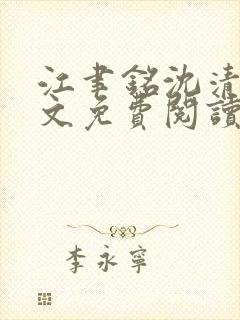 江聿銘沈清
文免費閱讀
李永寧